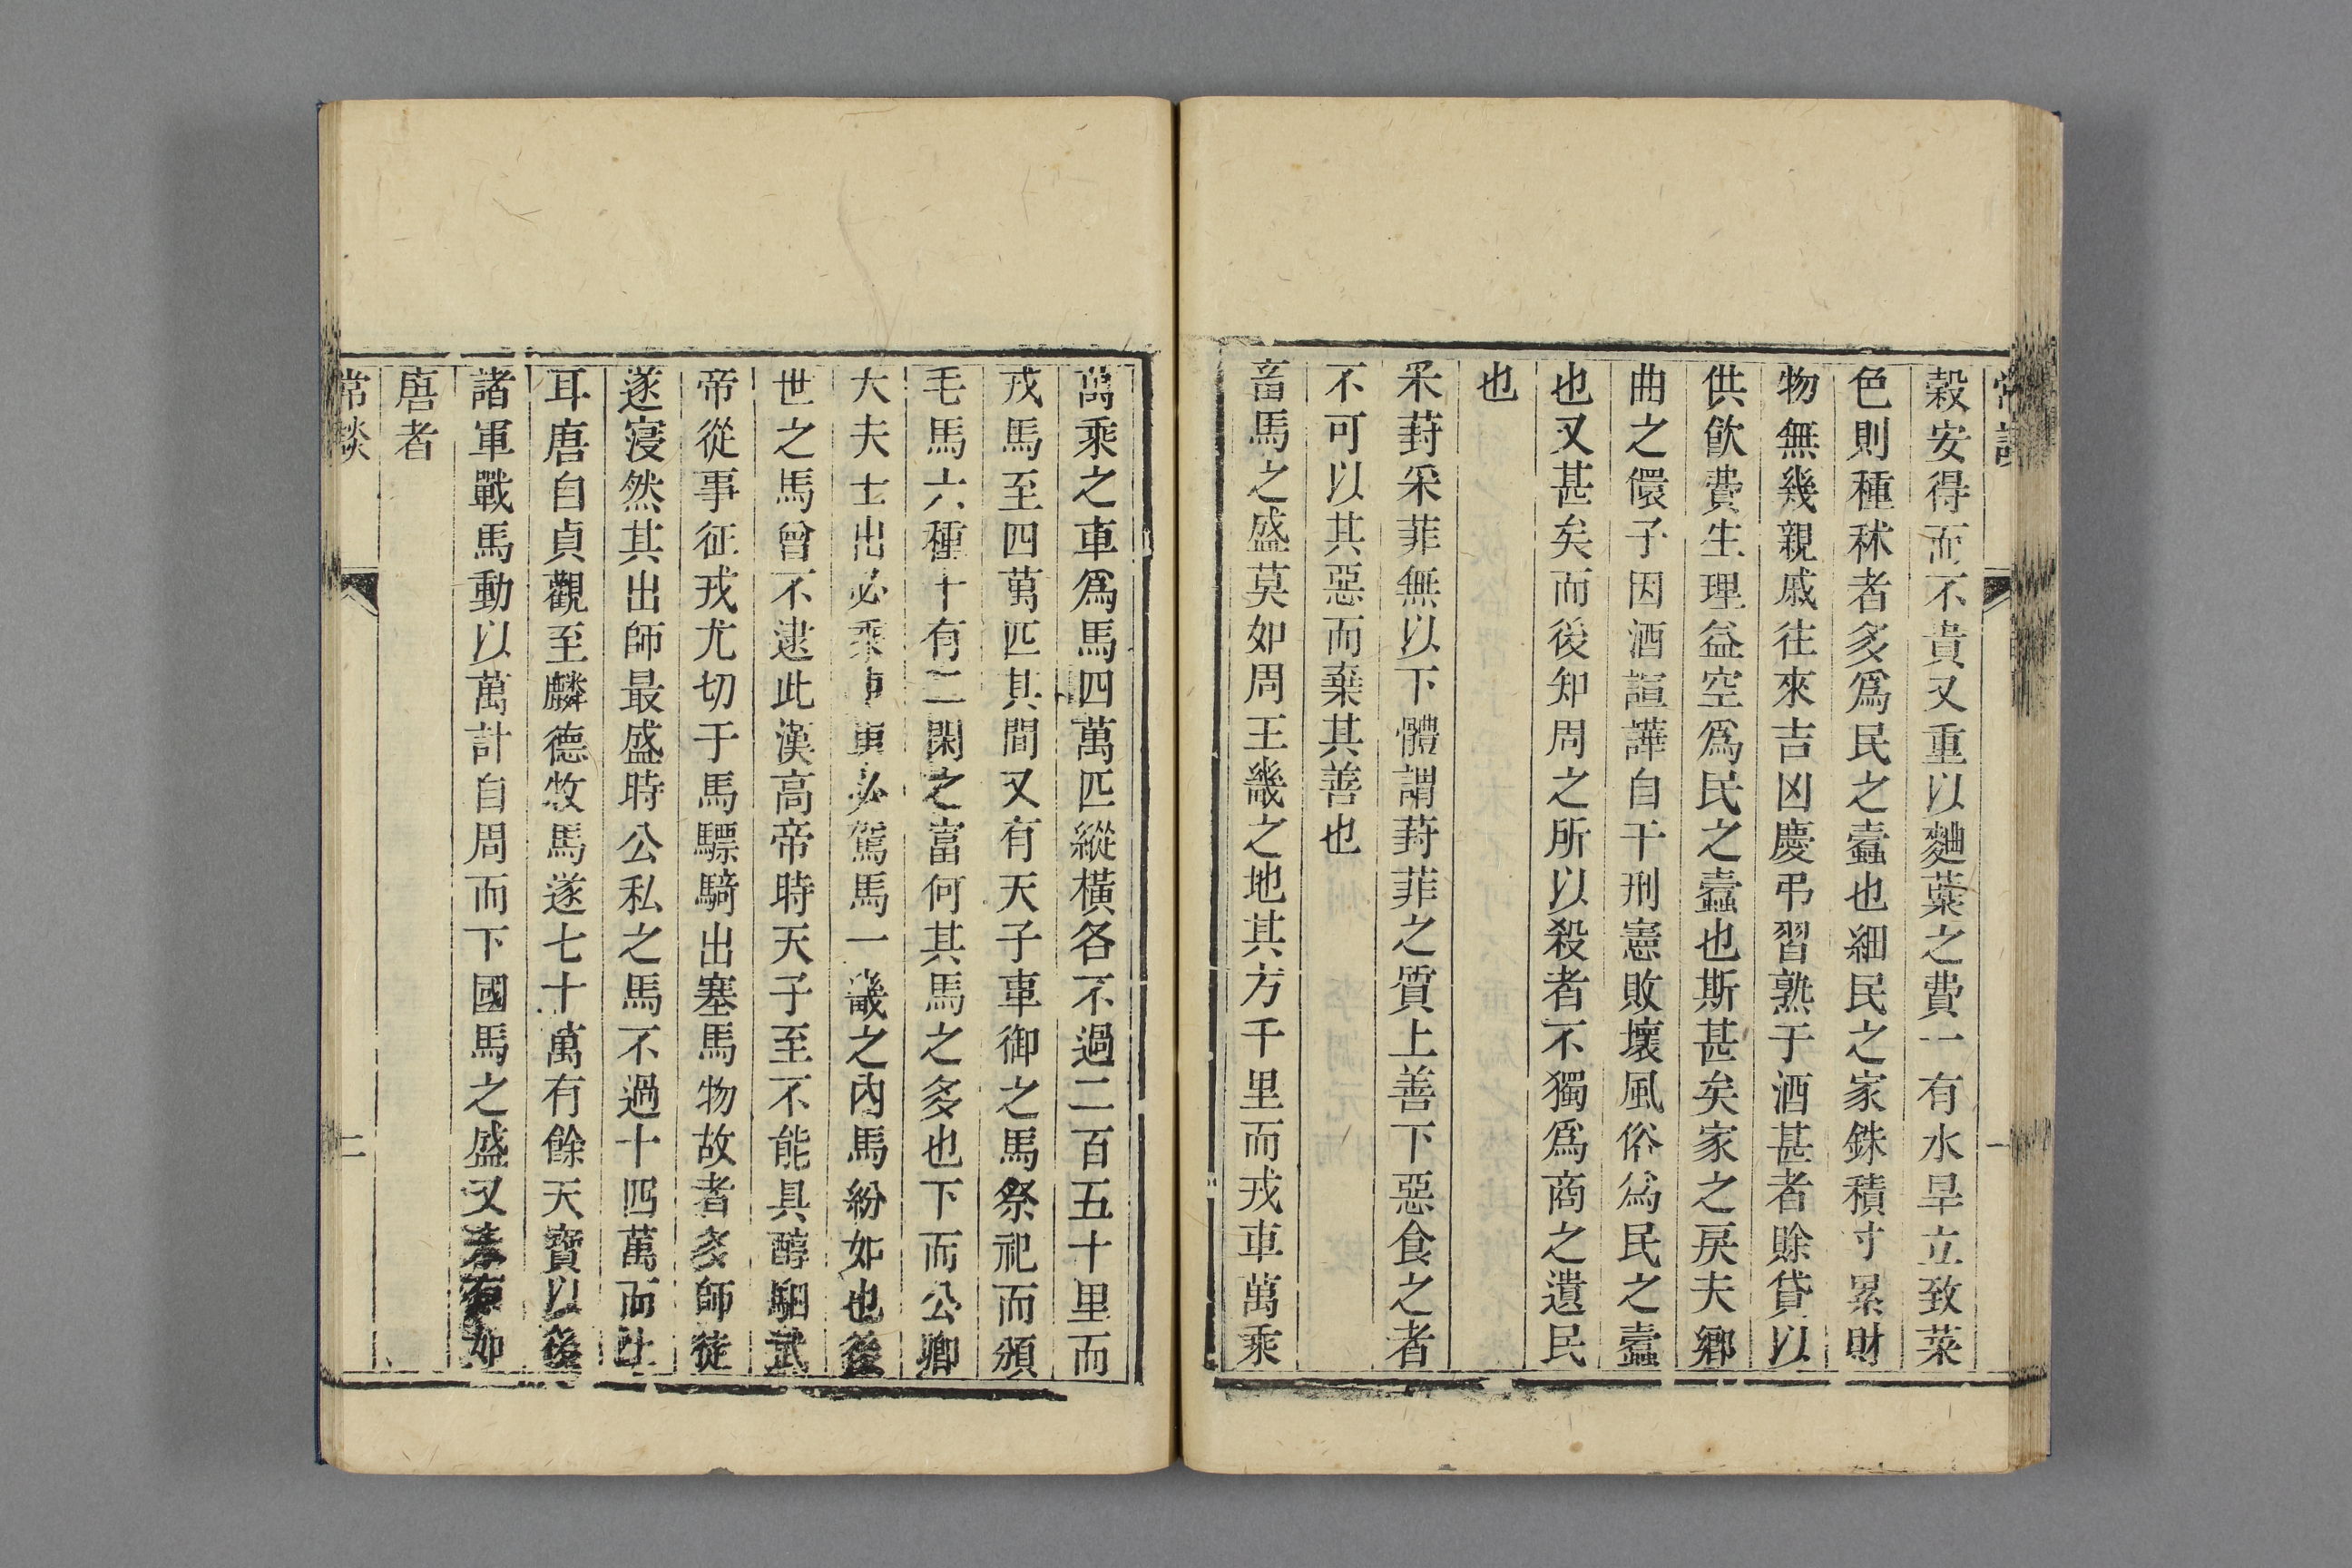 穀安得而不貴又重以麯蘖之費一有水旱立致菜
色則種秫者多爲民之蠧也細民之家銖積寸累財
物無幾親戚往來吉凶慶弔習熟于酒甚者賖貸以
供飲費生理益空爲民之蠧也斯甚矣家之戻夫鄉
曲之儇子因酒諠譁自干刑憲敗壞風俗爲民之蠧
也又甚矣而後知周之所以殺者不獨爲商之遺民
也
采葑采菲無以下體謂葑菲之質上善下惡食之者
不可以其惡而棄其善也
畜馬之盛莫如周王畿之地其方千里而戎車萬乘
萬乘之車爲馬四萬匹縱橫各不過二百五十里而
戎馬至四萬匹其間又有天子車御之馬祭祀而頒
毛馬六種十有二閑之富何其馬之多也下而公卿
大夫士出必乘車車必駕馬一畿之內馬紛如也後
世之馬曾不逮此漢高帝時天子至不能具醇駟武
帝從事征戎尤切于馬驃騎出塞馬物故者多師徒
遂寝然其出師最盛時公私之馬不過十四萬而壮
耳唐自貞觀至麟德牧馬遂七十萬有餘天寶以後
諸軍戰馬動以萬計自周而下國馬之盛又未有如
唐者
常談
二